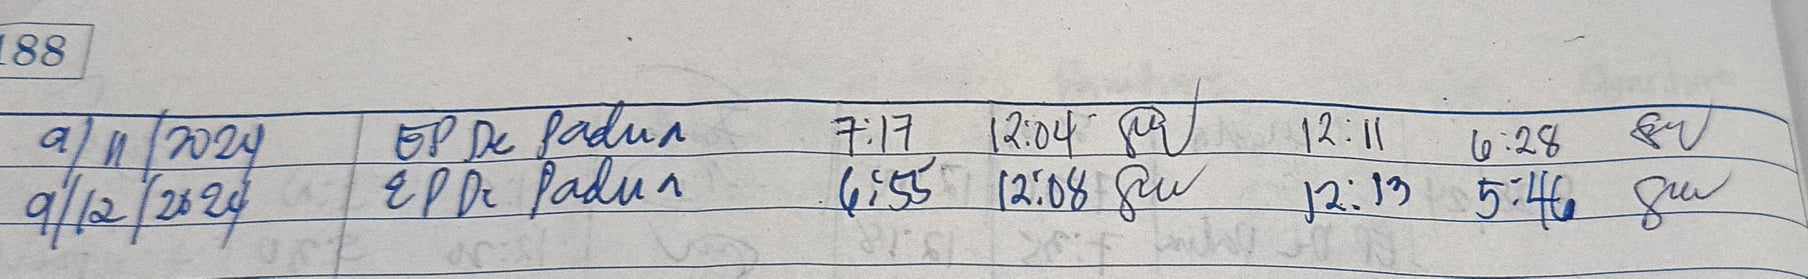 188
9/11/2024 EP De Padua 7:17 12:04 12:11 6:28
9/12/2024 EP De Padua 6:55 12:08 12:13 5:46